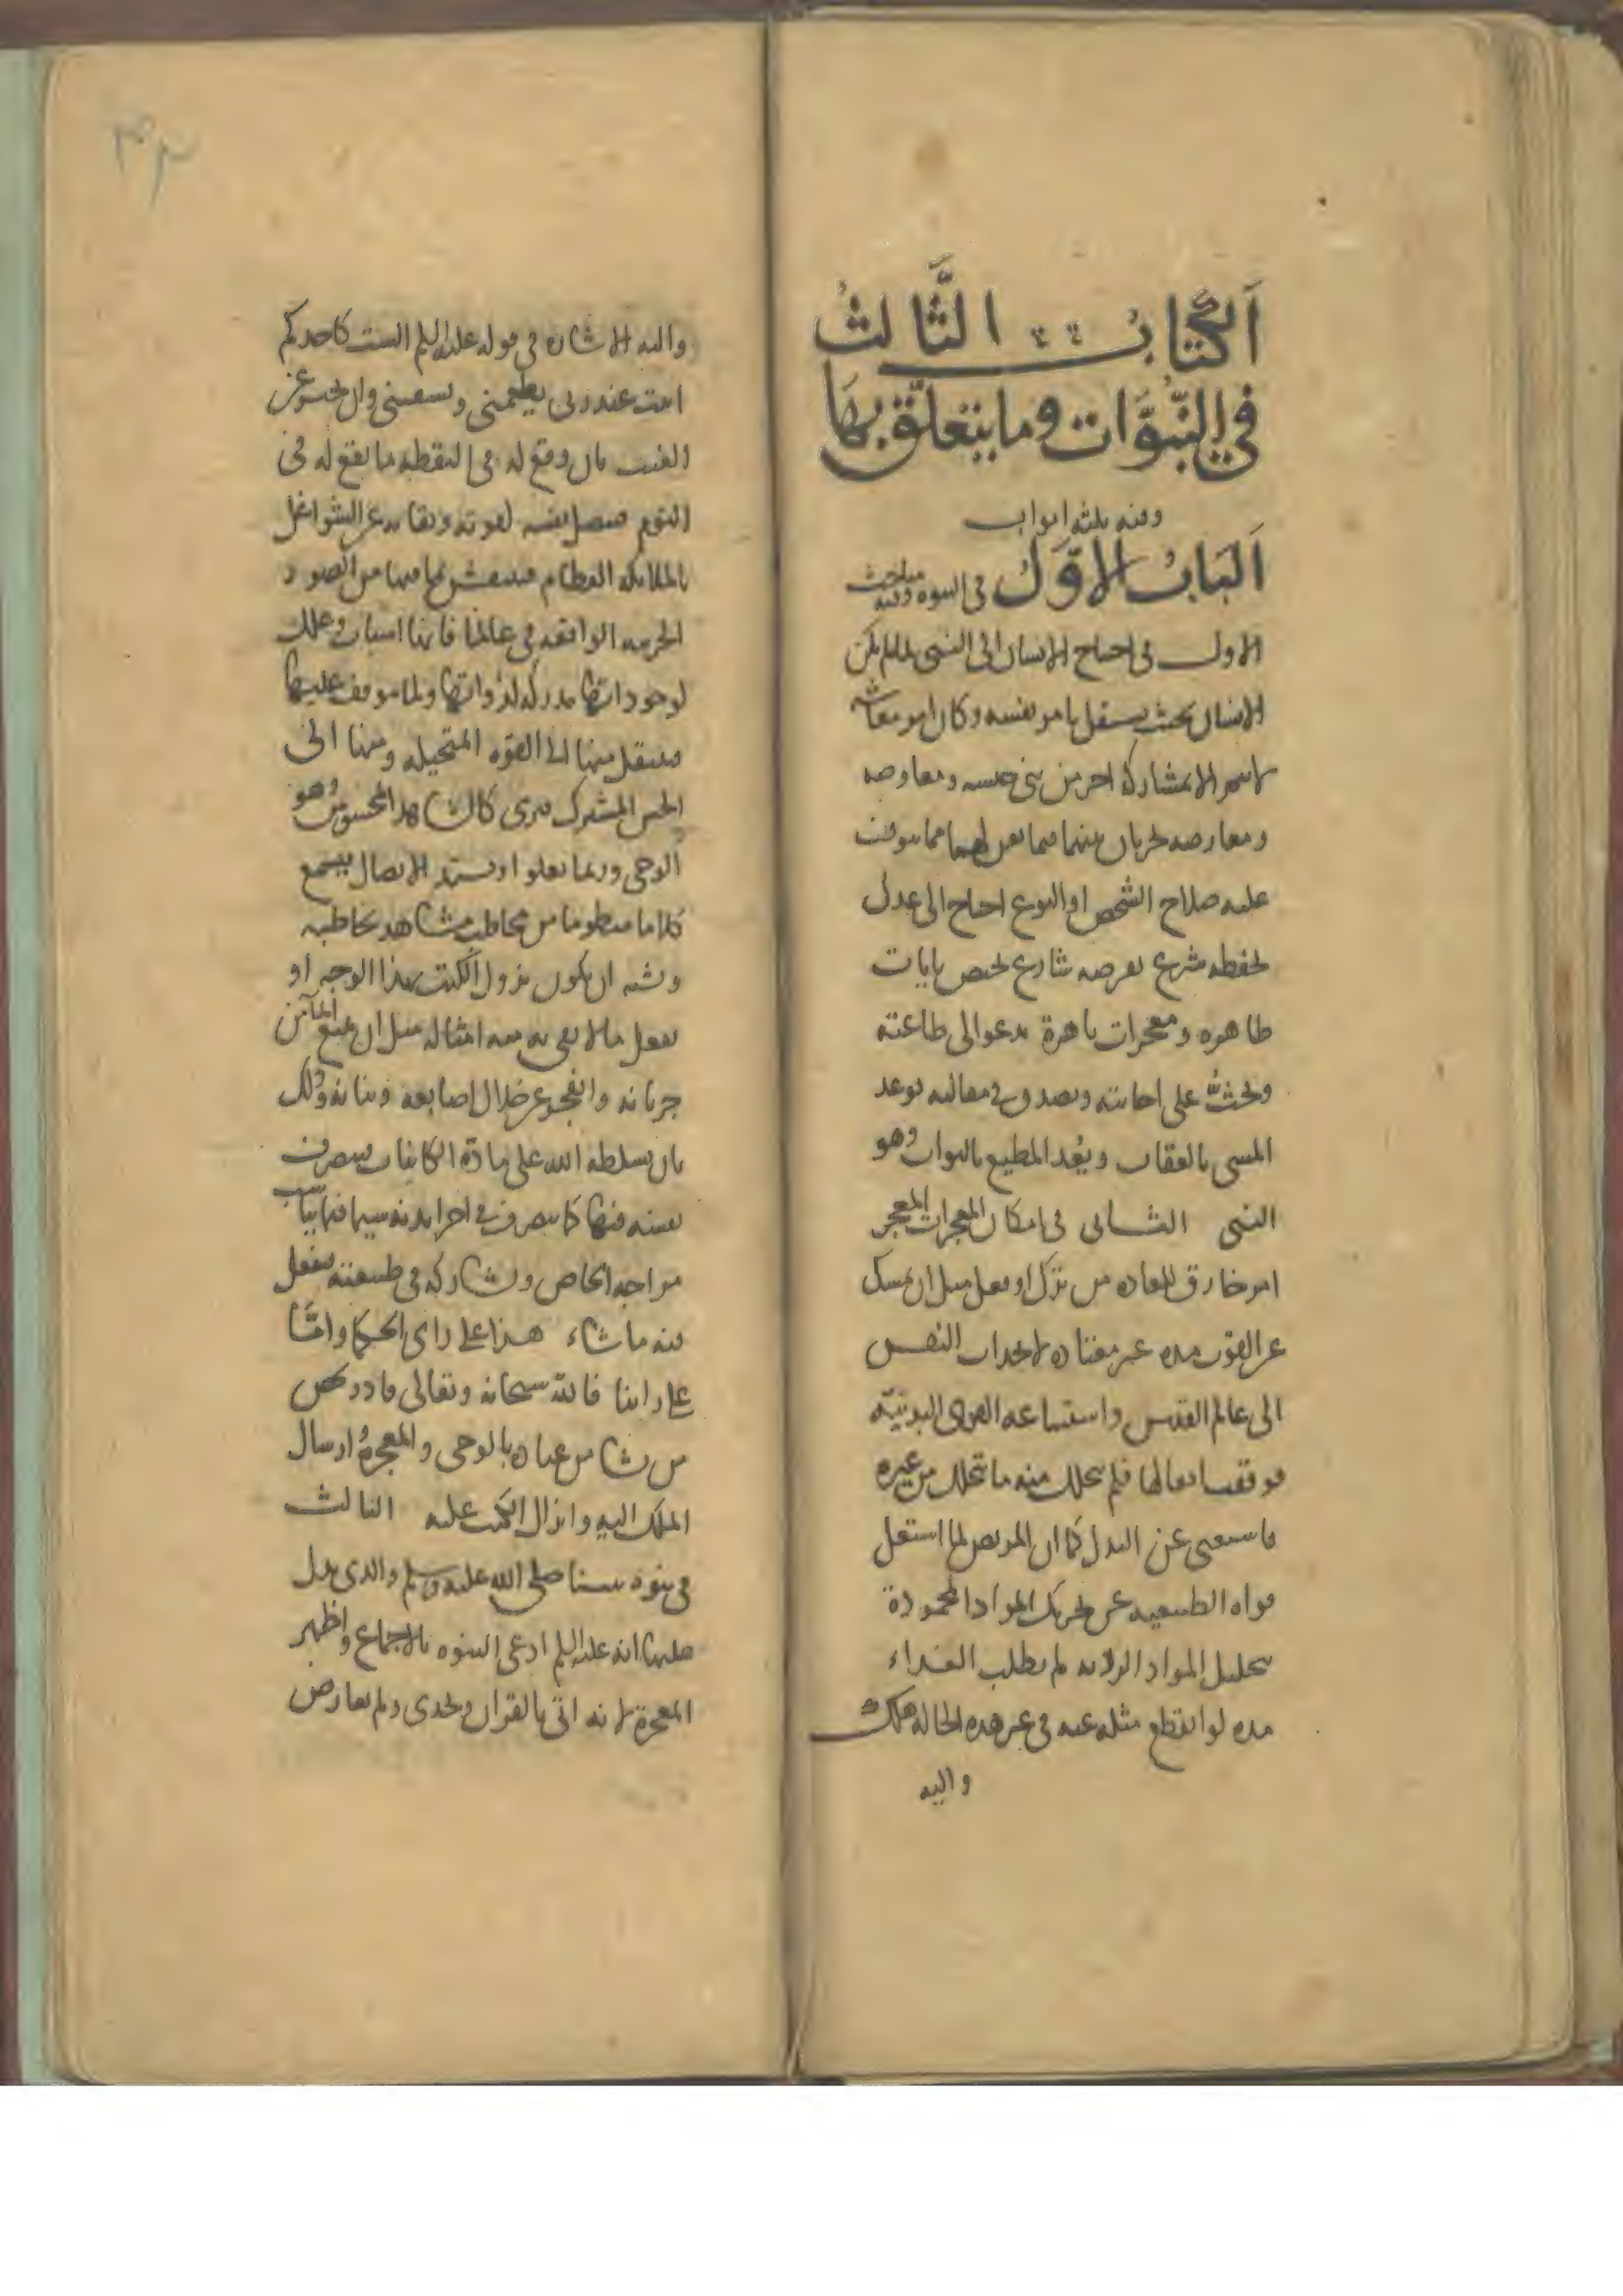 الكتاب الثالث
في النبوات وما يتعلق بها
وفيه ثلثة ابواب
الباب الاول في النبوة وفيه مباحث
الاول في احتياج الانسان الى النبي لما لم يكن
الانسان بحيث يستقل بامر نفسه وكان امر معاشه
لا يتم الا بمشاركة اخر من بني جنسه ومعاوضة
ومعارضة تجريان بينهما فيما يعن لهما مما يتوقف
عليه صلاح الشخص او النوع احتاج الى عدل
يحفظه شرع يفرضه شارع يختص بايات
ظاهرة ومعجزات باهرة يدعو الى طاعته
ويحث على اجابته ويصدق في مقالته يوعد
المسي بالعقاب ويعد المطيع بالثواب وهو
النبي الثاني في امكان المعجزات المعجز
امر خارق للعادة من ترك او فعل مثل ان يمسك
عن القوت مدة غير معتادة لانجذاب النفس
الى عالم القدس واستتباعه القوى البدنية
فوقفت افعالها فلم يتحلل منه ما يتحلل من غيره
فاستغنى عن البدل كما ان المريض لما اشتغل
قواه الطبيعية عن تحريك المواد المحمودة
بتحليل المواد الردية لم يطلب الغذاء
مدة لو انقطع مثله عنه في غير هذه الحالة هلك
واليه
٣٢
واليه الاشارة في قوله عليه السلم الست كاحدكم
ابيت عند ربي يطعمني ويسقيني وان يخبر عن
الغيب بان وقع له في اليقظة ما يقع له في
النوم فيتصل نفسه لقوته ونقايه عن الشواغل
بالملايكة العظام فينتقش بما فيها من الصور
الجزيية الواقعة في عالمنا فانها اسباب وعلل
لوجوداتها مدركة لذواتها ولما يتوقف عليها
فينتقل منها الى القوة المتخيلة ومنها الى
الحس المشترك فيرى كالمشاهد المحسوس وهو
الوحي وربما يعلو او يشتد الاتصال فيسمع
كلاما منظوما من مخاطب مشاهد يخاطبه
ويشبه ان يكون نزول الكتب بهذا الوجه او
يفعل ما لا يفي به منة امثاله مثل ان يمنع الماء من
جريانه وانفجر عن خلال اصابعه وبنانه وذلك
بان يسلطه الله على مادة الكاينات فيتصرف
نفسه فيها كما يتصرف في اجزا بدنه سيما فيما يناسب
مزاجه الخاص ويشاركه في طبيعته فيفعل
فيه ما شاء هذا على راي الحكما واما
على راينا فالله سبحانه وتعالى قادر يخص
من يشا من عباده بالوحي والمعجزة وارسال
الملك اليه وانزال الكتب عليه الثالث
في نبوة نبينا صلى الله عليه وسلم والذي يدل
عليها انه عليه السلم ادعى النبوة بالاجماع واظهر
المعجزة لانه اتى بالقران وتحدى ولم يعارض